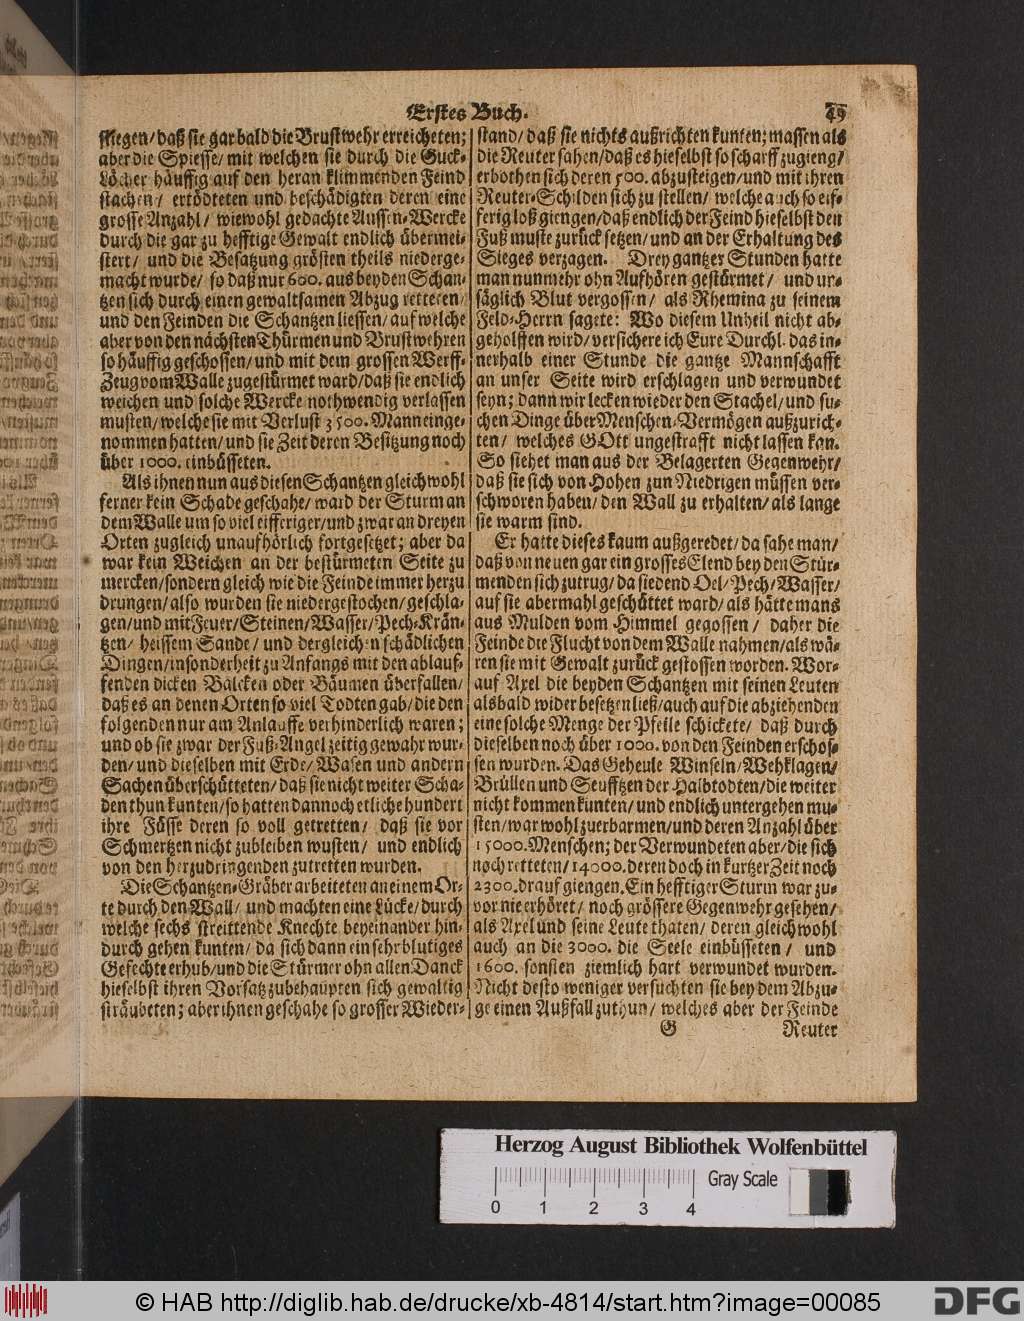 Erstes Buch. 49
stiegen/ daß sie gar bald die Brustwehr erreicheten;
aber die Spiesse/ mit welchen sie durch die Guck-
Löcher häuffig auf den heran klimmenden Feind
stachen/ ertödteten und beschädigten deren eine
grosse Anzahl/ wiewohl gedachte Aussen-Wercke
durch die gar zu hefftige Gewalt endlich übermei-
stert/ und die Besatzung grösten theils niederge-
macht wurde/ so daß nur 600. aus beyden Schan-
tzen sich durch einen gewaltsamen Abzug retteten/
und den Feinden die Schantzen liessen/ auf welche
aber von den nächsten Thürmen und Brustwehren
so häuffig geschossen/ und mit dem grossen Werff-
Zeug vom Walle zugestürmet ward/ daß sie endlich
weichen und solche Wercke nothwendig verlassen
musten/ welche sie mit Verlust 3500. Mann einge-
nommen hatten/ und sie Zeit deren Besitzung noch
über 1000. einbüsseten.
Als ihnen nun aus diesen Schantzen gleichwohl
ferner kein Schade geschahe/ ward der Sturm an
dem Walle um so viel eifferiger/ und zwar an dreyen
Orten zugleich unaufhörlich fortgesetzet; aber da
war kein Weichen an der bestürmeten Seite zu
mercken/ sondern gleich wie die Feinde immer herzu
drungen/ also wurden sie niedergestochen/ geschla-
gen/ und mit Feuer/ Steinen/ Wasser/ Pech-Krän-
tzen/ heissem Sande/ und dergleichen schädlichen
Dingen/ insonderheit zu Anfangs mit den ablauf-
fenden dicken Balcken oder Bäumen überfallen/
daß es an denen Orten so viel Todten gab/ die den
folgenden nur am Anlauffe verhinderlich waren;
und ob sie zwar der Fuß-Angel zeitig gewahr wur-
den/ und dieselben mit Erde/ Wasen und andern
Sachen überschütteten/ daß sie nicht weiter Scha-
den thun kunten/ so hatten dannoch etliche hundert
ihre Füsse deren so voll getretten/ daß sie vor
Schmertzen nicht zubleiben wusten/ und endlich
von den herzudringenden zutretten wurden.
Die Schantzen-Gräber arbeiteten an einem Or-
te durch den Wall/ und machten eine Lücke/ durch
welche sechs streittende Knechte beyeinander hin-
durch gehen kunten/ da sich dann ein sehr blutiges
Gefechte erhub/ und die Stürmer ohn allen Danck
hieselbst ihren Vorsatz zubehaupten sich gewaltig
sträubeten; aber ihnen geschahe so grosser Wieder-
stand/ daß sie nichts außrichten kunten; massen als
die Reuter sahen/ daß es hieselbst so scharff zugieng/
erbothen sich deren 500. abzusteigen/ und mit ihren
Reuter-Schilden sich zu stellen/ welche auch so eif-
ferig loß giengen/ daß endlich der Feind hieselbst den
Fuß muste zurück setzen/ und an der Erhaltung des
Sieges verzagen. Drey gantzer Stunden hatte
man nunmehr ohn Aufhören gestürmet/ und un-
säglich Blut vergossen/ als Rhemina zu seinem
Feld-Herrn sagete: Wo diesem Unheil nicht ab-
geholffen wird/ versichere ich Eure Durchl. das in-
nerhalb einer Stunde die gantze Mannschafft
an unser Seite wird erschlagen und verwundet
seyn; dann wir lecken wieder den Stachel/ und su-
chen Dinge über Menschen-Vermögen außzurich-
ten/ welches GOtt ungestrafft nicht lassen kan.
So siehet man aus der Belagerten Gegenwehr/
daß sie sich von Hohen zun Niedrigen müssen ver-
schworen haben/ den Wall zu erhalten/ als lange
sie warm sind.
Er hatte dieses kaum außgeredet/ da sahe man/
daß von neuen gar ein grosses Elend bey den Stür-
menden sich zutrug/ da siedend Oel/ Pech/ Wasser/
auf sie abermahl geschüttet ward/ als hätte mans
aus Mulden vom Himmel gegossen/ daher die
Feinde die Flucht von dem Walle nahmen/ als wä-
ren sie mit Gewalt zurück gestossen worden. Wor-
auf Axel die beyden Schantzen mit seinen Leuten
alsbald wider besetzen ließ/ auch auf die abziehenden
eine solche Menge der Pfeile schickete/ daß durch
dieselben noch über 1000. von den Feinden erschos-
sen wurden. Das Geheule Winseln/ Wehklagen/
Brüllen und Seufftzen der Halbtodten/ die weiter
nicht kommen kunten/ und endlich untergehen mu-
sten/ war wohl zuerbarmen/ und deren Anzahl über
15000. Menschen; der Verwundeten aber/ die sich
noch retteten/ 14000. deren doch in kurtzer Zeit noch
2300. drauf giengen. Ein hefftiger Sturm war zu-
vor nie erhöret/ noch grössere Gegenwehr gesehen/
als Axel und seine Leute thaten/ deren gleichwohl
auch an die 3000. die Seele einbüsseten/ und
1600. sonsten ziemlich hart verwundet wurden.
Nicht desto weniger versuchten sie bey dem Abzu-
ge einen Außfall zuthun/ welches aber der Feinde
G Reuter
Herzog August Bibliothek Wolfenbüttel
Gray Scale
0 1 2 3 4
© HAB http://diglib.hab.de/drucke/xb-4814/start.htm?image=00085
DFG